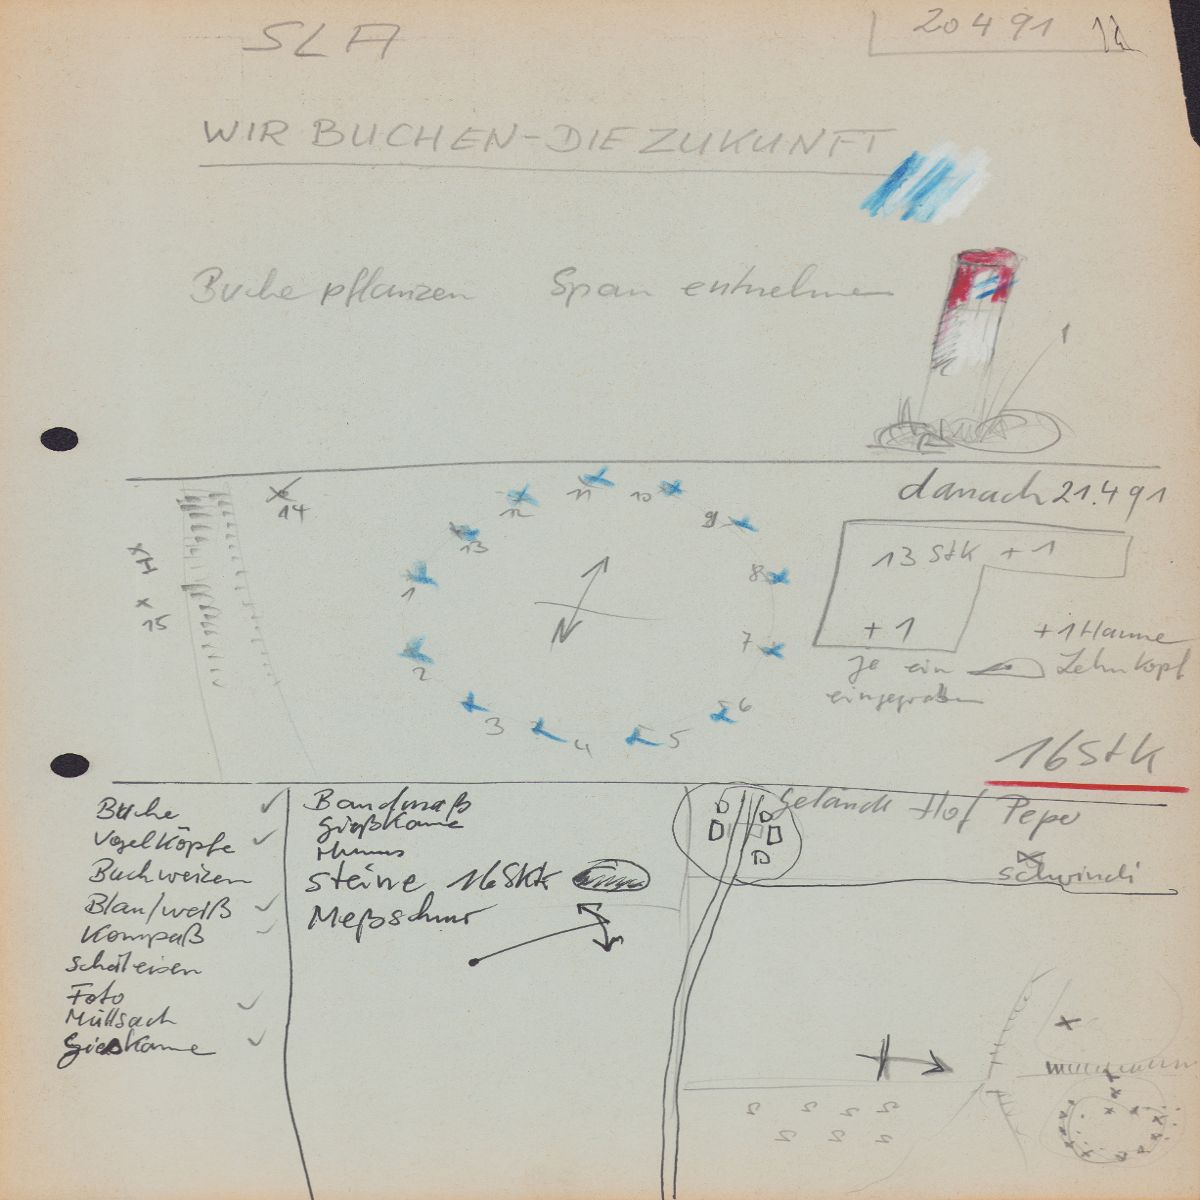 SLA
20 4 91
WIR BUCHEN-DIE ZUKUNFT
Buche pflanzen Span entnehmen
danach 21.4 91
14
15
1
2
3
4
5
6
7
8
9
10
11
12
13
N
13 Stk + 1
+ 1
je ein
eingegraben
+1 Hamme
Lehmkopf
16 Stk
Buche
Vogelköpfe
Buchweizen
Blau/weiß
Kompaß
Schäleisen
Foto
Müllsack
Gießkanne
Bandmaß
Gießkanne
Humus
Steine 16 Stk
Meßschnur
Gelände Hof Peper
Schwindi